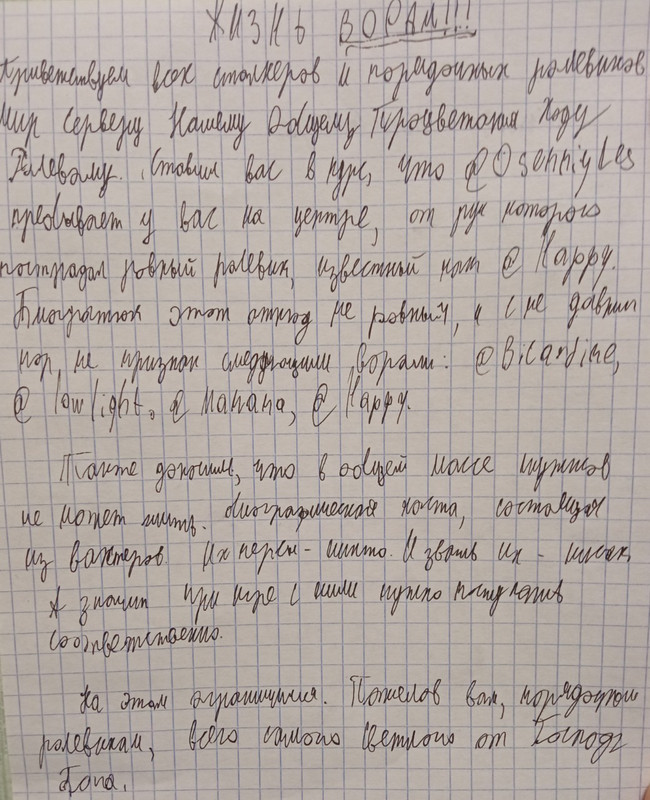 ЖИЗНЬ ВОРАМ!!!
Приветствуем всех сталкеров и порядочных ролевиков
Мир Серверу Нашему Общему Процветания Ходу
Ролевому. Ставим вас в курс, что @Osenniyles
пребывает у вас на центре, от рук которого
пострадал ровный ролевик, известный как @Happy.
этот отнюд не ровный, и с не давних
пор, не признан следующими ворами: @Bicardine,
@lowlight, @Manana, @Happy.
Также доносим, что в общей массе мужиков
не может жить биографическая каста, состоящая
из вахтеров. Их персы - никто. И звать их - никак.
А значит при игре с ними нужно поступать
соответственно.
На этом ограничимся. Пожелав вам, порядочным
ролевикам, всего самого светлого от Господа
Бога.